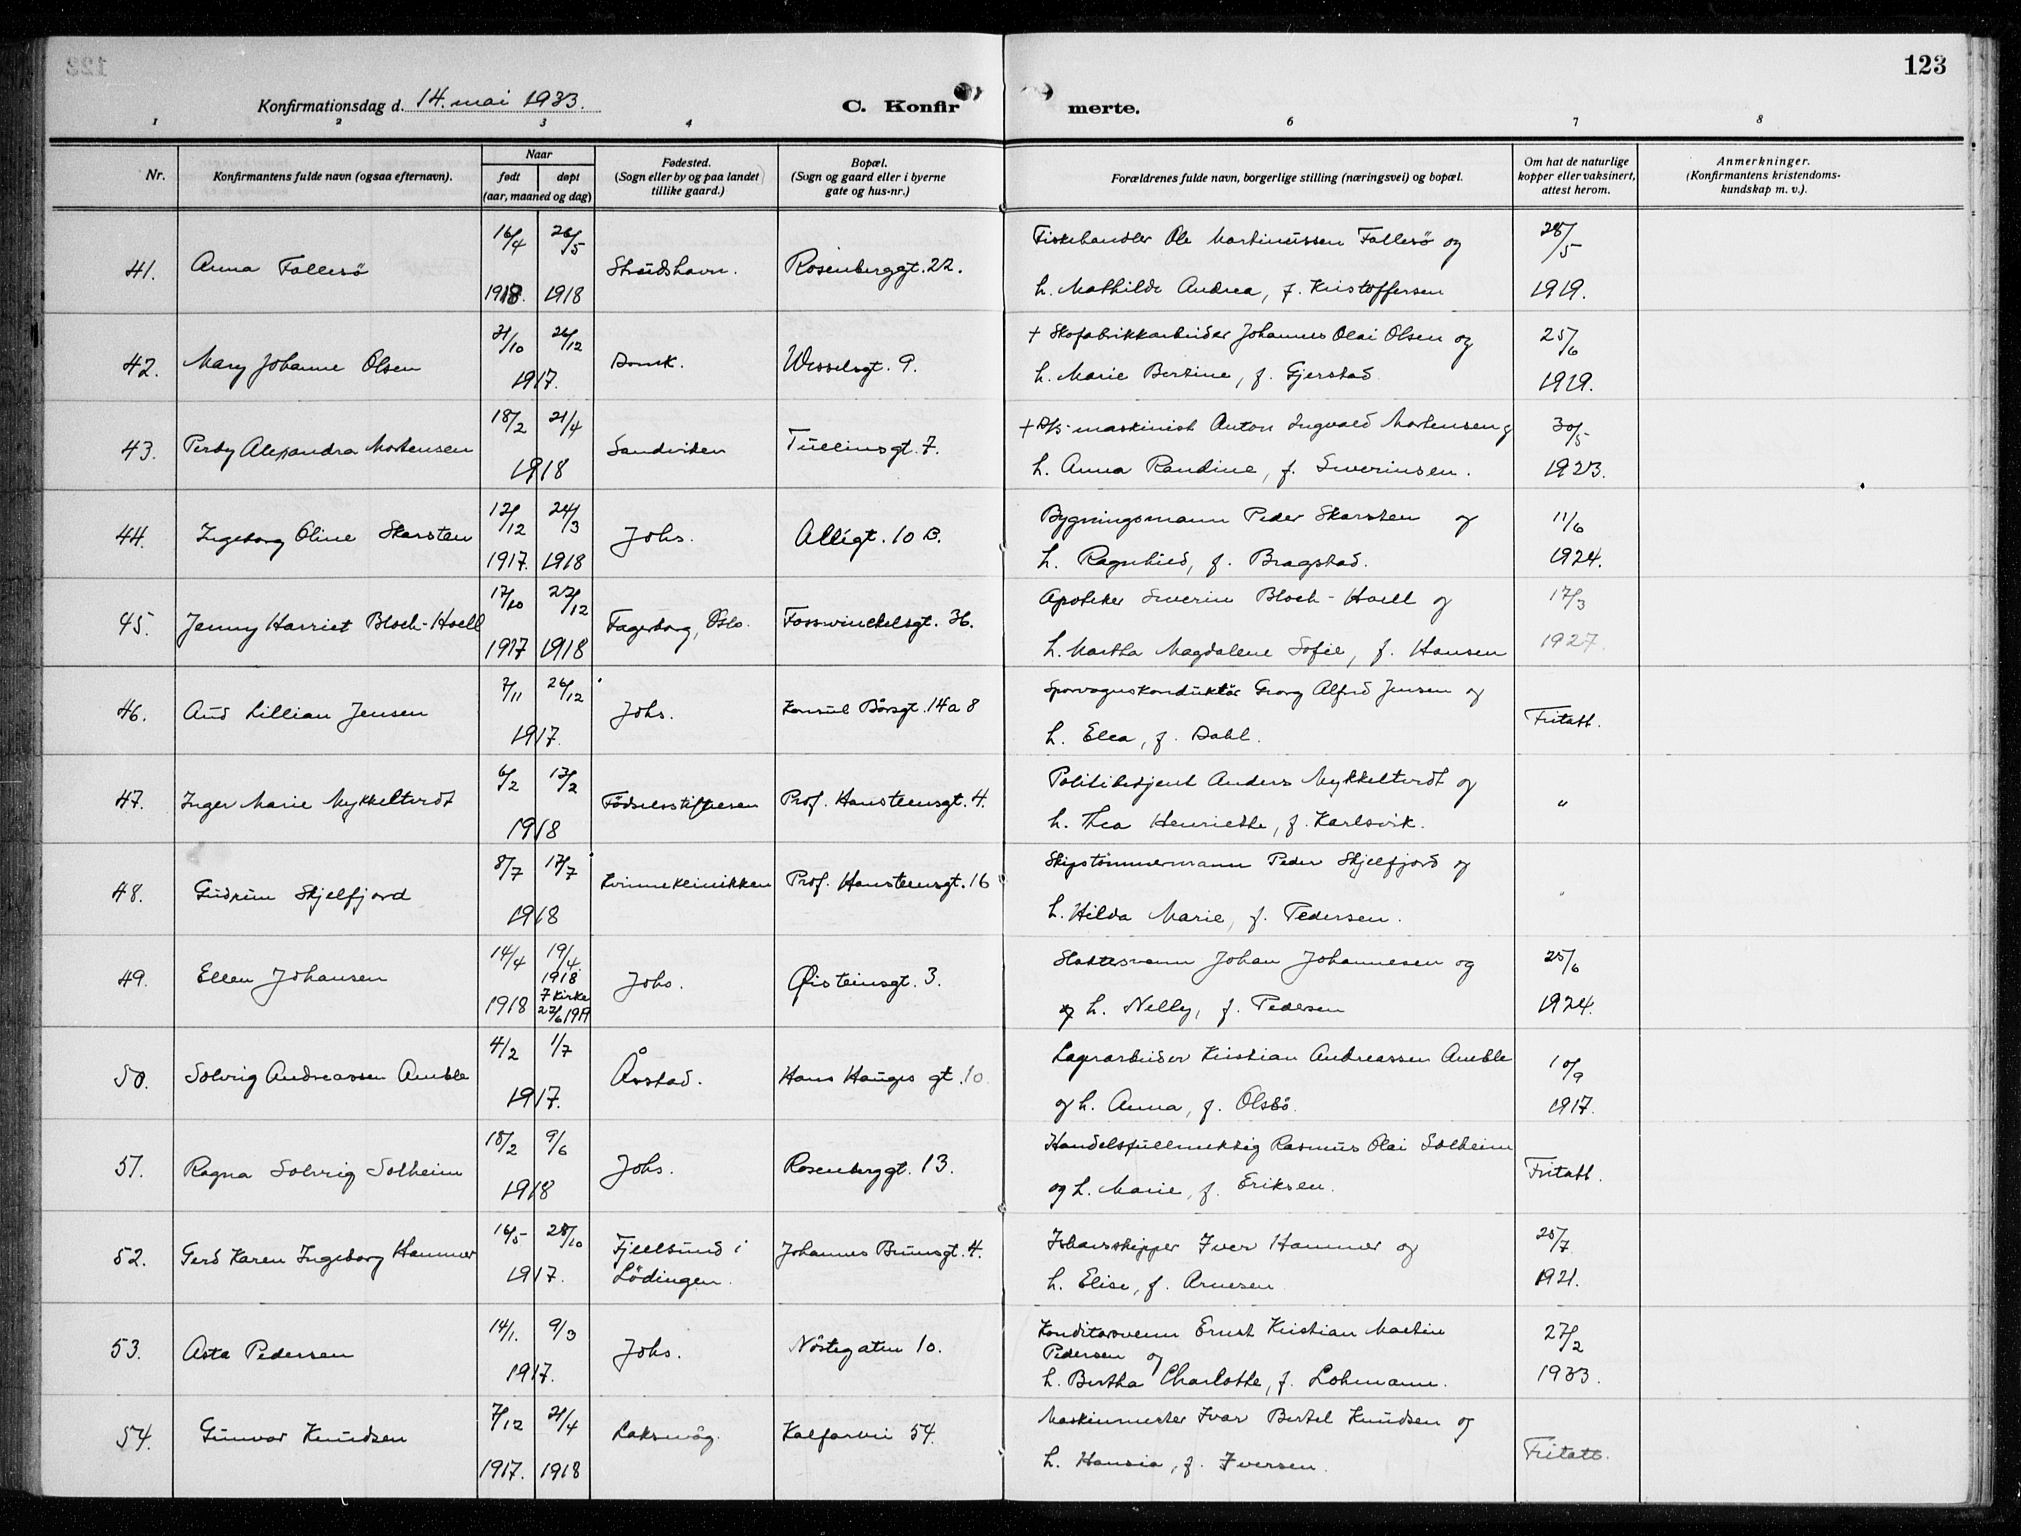 123
Konfirmationsdag d. 14. mai 1933.
C. Konfir merte.
1 2 3 4 6 7 8
Nr.
Konfirmantens fulde navn (ogsaa efternavn).
Naar
født døpt
(aar, maaned og dag)
Fødested.
(Sogn eller by og paa landet
tillike gaard.)
Bopæl.
(Sogn og gaard eller i byerne
gate og hus-nr.)
Forældrenes fulde navn, borgerlige stilling (næringsvei) og bopæl.
Om hat de naturlige
kopper eller vaksinert,
attest herom.
Anmerkninger.
(Konfirmantens kristendoms-
kundskap m. v.).
16/4 26/5 Fiskehandler Ole Martinussen Fallesö og 28/5
41. Anna Fallesö Strudshavn. Rosenberggt. 22.
1918. 1918 h. Mathilde Andrea, f. Kristoffersen 1919.
21/10 26/12 + Skofabrikkarbeider Johannes Olai Olsen og 25/6
42. Mary Johanne Olsen Domk. Wesselsgt. 9.
1917. h. Marie Bertine, f. Gjerstad. 1919.
18/2 21/4 + D/s-maskinist Anton Ingvald Mortensen og 30/5
43. Perby Alexandra Mortensen Sandviken Tullinsgt. 7.
1918 h. Anna Randine, f. Severinsen. 1923.
12/12 24/3 Bygningsmann Peder Skarsten og 11/6
44. Ingeborg Oline Skarsten Johs. Alligt. 10 B.
1917. 1918 h. Ragnhild, f. Bragstad. 1924.
17/10 22/12 Apoteker Severin Bloch-Hoell og 17/3
45. Jenny Harriet Bloch-Hoell Fagerborg, Oslo. Fosswinckelsgt. 36.
1917 1918 h. Martha Magdalene Sofie, f. Hansen 1927.
7/11 26/12 Sporvognskonduktör Georg Alfred Jensen og
46. Aud Lillian Jensen Johs. Konsul Börsgt. 14a 8 Fritatt.
1917. h. Ella, f. Dahl.
6/2 13/2 Politibetjent Anders Mykkeltvedt og
47. Inger Marie Mykkeltvedt Födselsstiftelsen Prof. Hansteensgt. 4. "
1918 h. Thea Henriethe, f. Karlsvik.
8/7 17/7 Skipstömmermann Peder Skjelfjord og
48. Gudrun Skjelfjord Kvinneklinikken Prof. Hansteensgt. 16 "
1918 h. Hilda Marie, f. Pedersen.
14/4 19/4 1918 Johan Johannesen og 25/6
49. Ellen Johansen Johs. Øisteinsgt. 3.
1918 I kirke 22/6 1919 og h. Nelly, f. Pedersen 1924.
4/2 1/7 Lagerarbeider Kristian Andreassen Amble 10/9
50. Solveig Andreassen Amble Årstad. Hans Hauges gt. 10
1917. og h. Anna, f. Olsbö. 1917.
18/2 9/6 Handelsfullmektig Rasmus Olai Solheim
51. Ragna Solveig Solheim Johs. Rosenberggt. 13. Fritatt.
1918 og h. Marie, f. Eriksen.
16/5 28/10 Ishavsskipper Iver Hammer og 25/7
52. Gerd Karen Ingeborg Hammer Fjellsund i Lödingen. Johannes Brunsgt. 4.
1917. h. Elise, f. Arnesen 1921.
14/1. 9/3 Konditorsvenn Ernst Kristian Martin 27/2
53. Asta Pedersen Johs. Nöstegaten 10. Pedersen og
1917. h. Bertha Charlotte, f. Lohmann. 1933.
7/12 21/4 Maskinmester Ivar Bertel Knudsen og
54. Gunvor Knudsen Laksevåg. Kalfarvei 54. Fritatt.
1917. 1918 h. Hansia, f. Iversen.